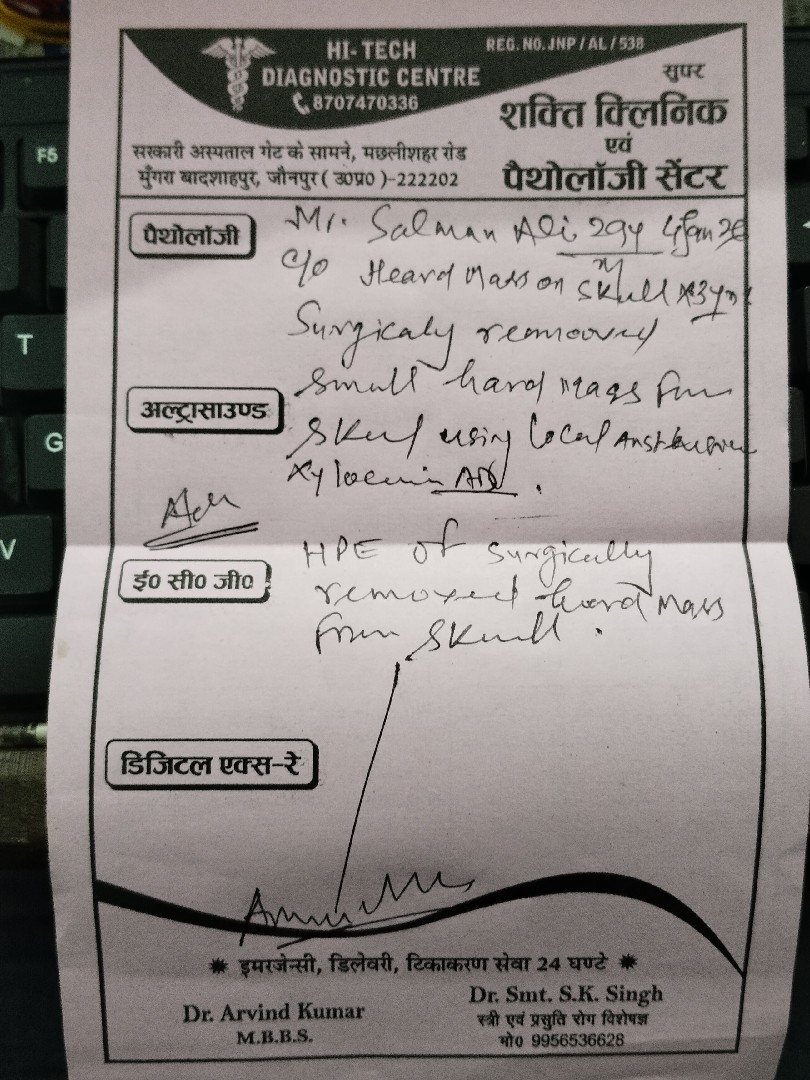 HI-TECH
DIAGNOSTIC CENTRE
8707470336
REG. NO. JNP / AL / 538
सुपर
शक्ति क्लिनिक
एवं
पैथोलॉजी सेंटर
सरकारी अस्पताल गेट के सामने, मछलीशहर रोड
मुँगरा बादशाहपुर, जौनपुर ( उ0प्र0 )-222202
पैथोलॉजी
Mr. Salman Ali 29y 4 Jan 26
M
c/o Heard Mass on Skull x3yrs
Surgicaly remooved
अल्ट्रासाउण्ड
Small hard mass from
Skull using local
Xylocain AD.
Adv
ई0 सी0 जी0
HPE of Surgically
removed hard Mass
from Skull.
डिजिटल एक्स-रे
इमरजेन्सी, डिलेवरी, टिकाकरण सेवा 24 घण्टे
Dr. Arvind Kumar
M.B.B.S.
Dr. Smt. S.K. Singh
स्त्री एवं प्रसुति रोग विशेषज्ञ
मो0 9956536628
F5
T
G
V